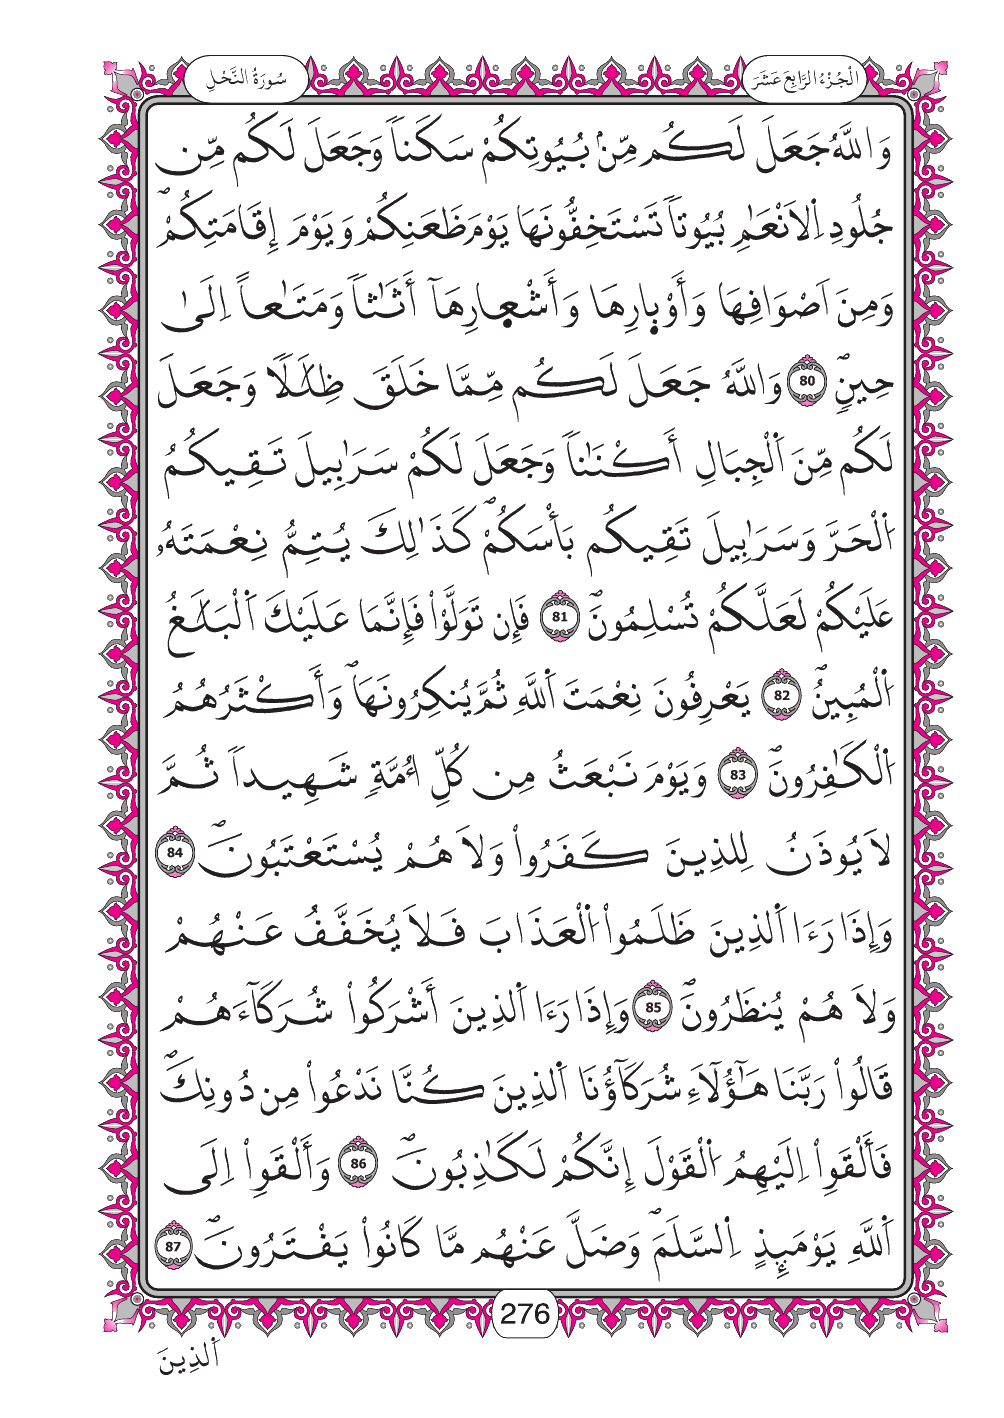 سُورَةُ النَّحْلِ
اَلْجُزْءُ الرَّابِعَ عَشَرَ
وَاللَّهُ جَعَلَ لَكُم مِّنۢ بُيُوتِكُمْ سَكَناٗ وَجَعَلَ لَكُم مِّن
جُلُودِ اِ۬لَانْعَٰمِ بُيُوتاٗ تَسْتَخِفُّونَهَا يَوْمَ ظَعَنِكُمْ وَيَوْمَ إِقَامَتِكُمْۖ
وَمِنَ اَصْوَافِهَا وَأَوْبٜارِهَا وَأَشْعٜارِهَآ أَثَٰثاٗ وَمَتَٰعاً اِلَىٰ
حِينٖۖ 80 وَاللَّهُ جَعَلَ لَكُم مِّمَّا خَلَقَ ظِلَٰلاٗ وَجَعَلَ
لَكُم مِّنَ اَ۬لْجِبَالِ أَكْنَٰناٗ وَجَعَلَ لَكُمْ سَرَٰبِيلَ تَقِيكُمُ
اُ۬لْحَرَّ وَسَرَٰبِيلَ تَقِيكُم بَأْسَكُمْۖ كَذَٰلِكَ يُتِمُّ نِعْمَتَهُۥ
عَلَيْكُمْ لَعَلَّكُمْ تُسْلِمُونَۖ 81 فَإِن تَوَلَّوْاْ فَإِنَّمَا عَلَيْكَ اَ۬لْبَلَٰغُ
اُ۬لْمُبِينُۖ 82 يَعْرِفُونَ نِعْمَتَ اَ۬للَّهِ ثُمَّ يُنكِرُونَهَاۖ وَأَكْثَرُهُمُ
اُ۬لْكَٰفِرُونَۖ 83 وَيَوْمَ نَبْعَثُ مِن كُلِّ أُمَّةٖ شَهِيداٗ ثُمَّ
لَا يُوذَنُ لِلذِينَ كَفَرُواْ وَلَا هُمْ يُسْتَعْتَبُونَۖ 84
وَإِذَا رَءَا اَ۬لذِينَ ظَلَمُواْ اُ۬لْعَذَابَ فَلَا يُخَفَّفُ عَنْهُمْ
وَلَا هُمْ يُنظَرُونَۖ 85 وَإِذَا رَءَا اَ۬لذِينَ أَشْرَكُواْ شُرَكَآءَهُمْ
قَالُواْ رَبَّنَا هَٰٓؤُلَآءِ شُرَكَآؤُنَا اَ۬لذِينَ كُنَّا نَدْعُواْ مِن دُونِكَۖ
فَأَلْقَوِاْ اِلَيْهِمُ اُ۬لْقَوْلَ إِنَّكُمْ لَكَٰذِبُونَۖ 86 وَأَلْقَوِاْ اِلَى
اَ۬للَّهِ يَوْمَئِذٍ اِ۬لسَّلَمَۖ وَضَلَّ عَنْهُم مَّا كَانُواْ يَفْتَرُونَۖ 87
276
اَ۬لذِينَ